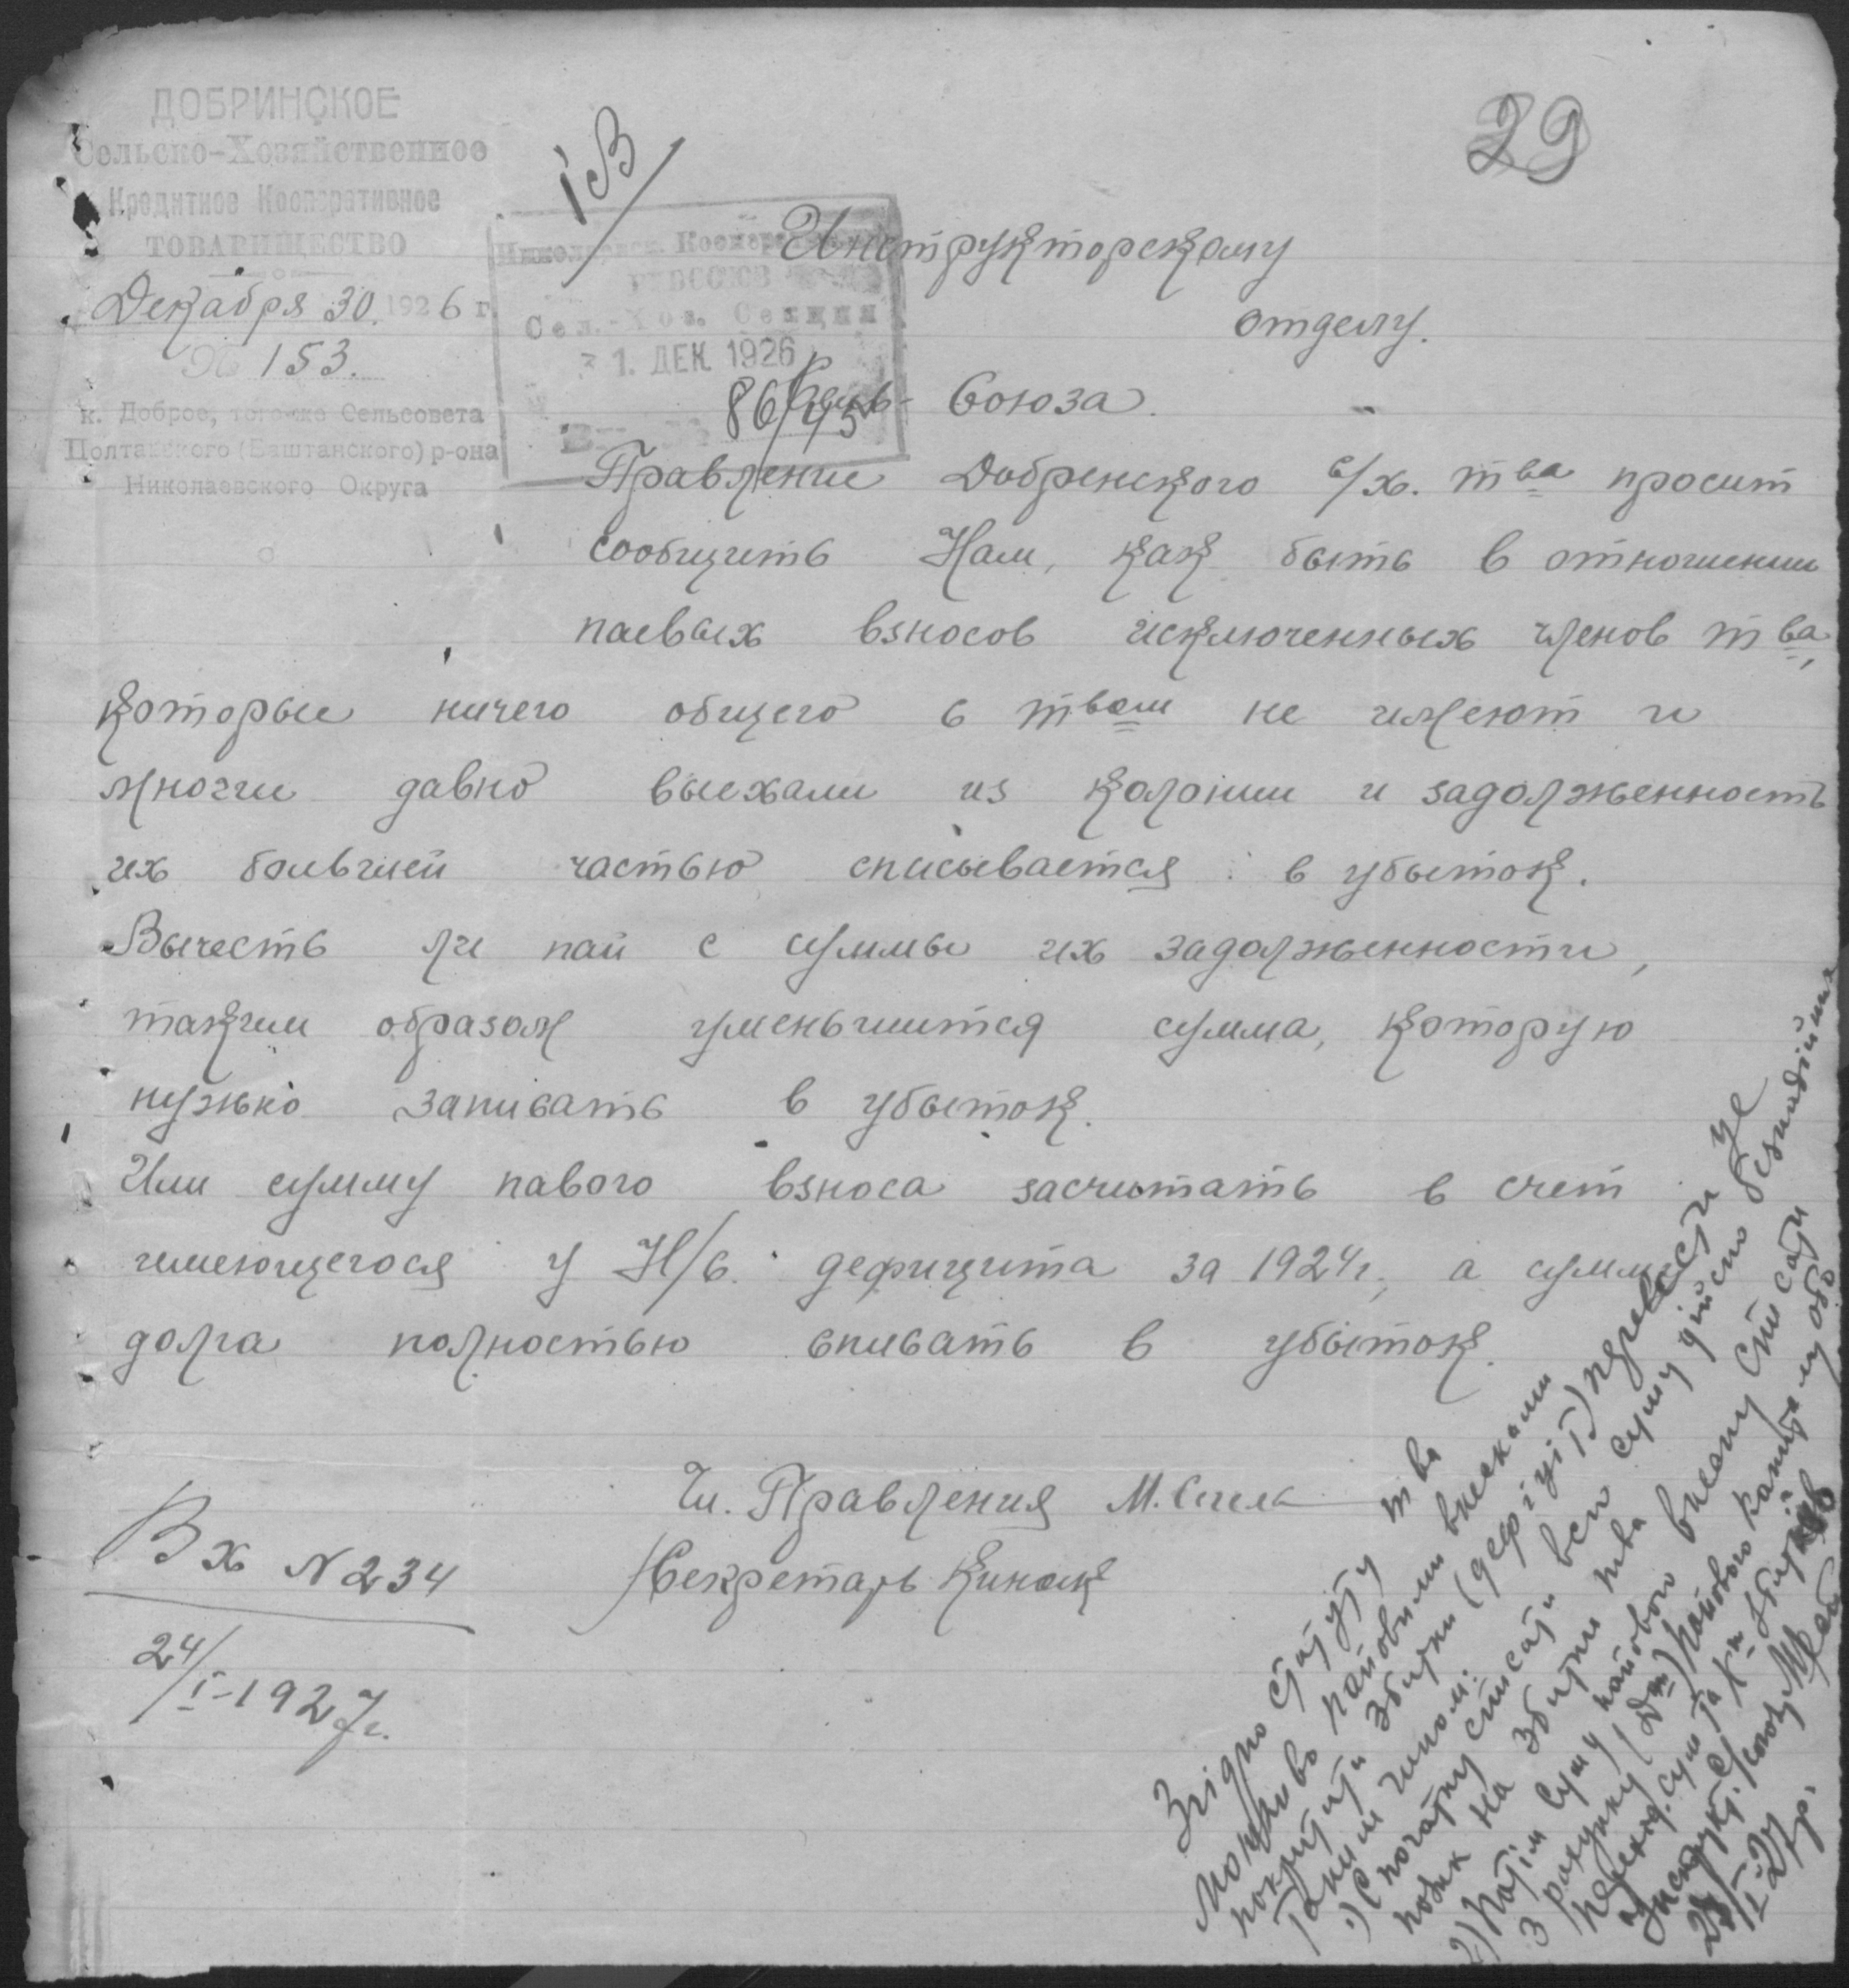 ДОБРИНСКОЕ
Сельско-Хозяйственное
Кредитное Кооперативное
ТОВАРИЩЕСТВО
Декабря 30. 1926 г.
№ 153.
к. Доброе, того-же Сельсовета
Полтавского (Баштанского) р-она
Николаевского Округа
29
Сел.-Хоз. Секция
31. ДЕК. 1926
86/45
Инструкторскому
отделу.
Союза.
Правление Добренского с/х. тва просит
сообщить Нам, как быть в отношении
паевых взносов исключенных членов тва,
которые ничего общего с твом не имеют и
многие давно выехали из колонии и задолженность
их большей частью списывается в убыток.
Вычесть ли пай с суммы их задолженности,
таким образом уменьшится сумма, которую
нужно записать в убыток.
Или сумму павого взноса засчитать в счет
имеющегося у Н/с. дефицита за 1924 г., а сумму
долга полностью списать в убыток.
Чл. Правления М.
Секретарь
Вх N 234
24/I-1927г.
Згідно статуту тва
можливо пайовими внесками
покрити збитки (дефіцит) провести це
таким чином:
1) С початку списати всю суму дійсно безнадійних
позик на збитки тва
2) Потім суму пайового внеску списати
з рахунку (Дт) пайового капиталу або